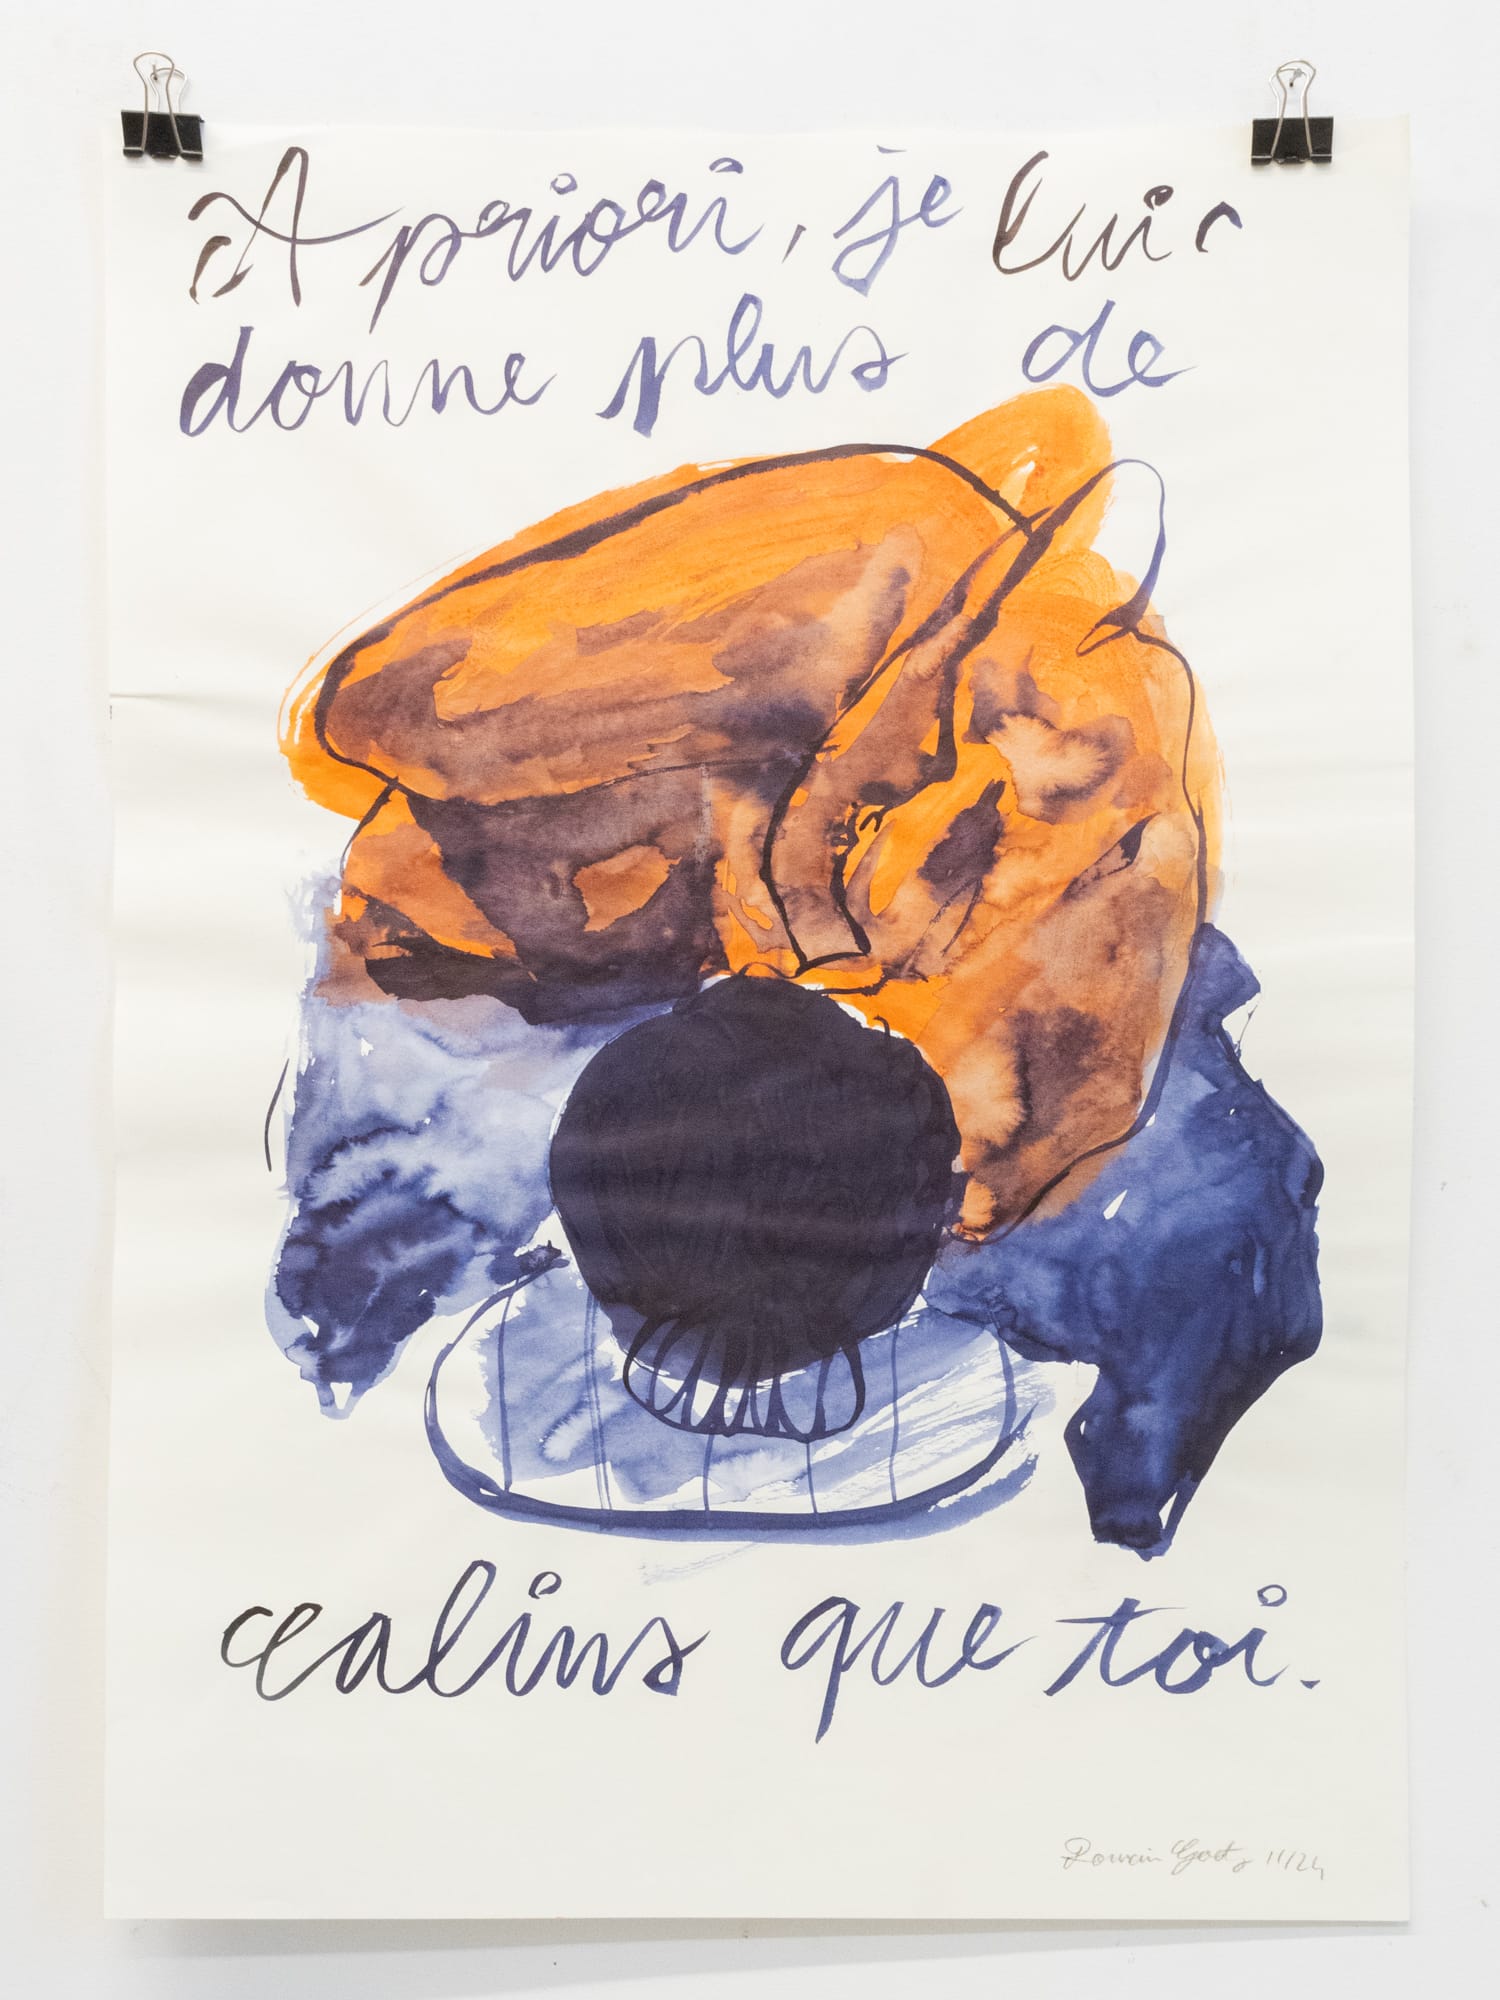 A priori, je lui
donne plus de
calins que toi.
Romain Goetz 11/24